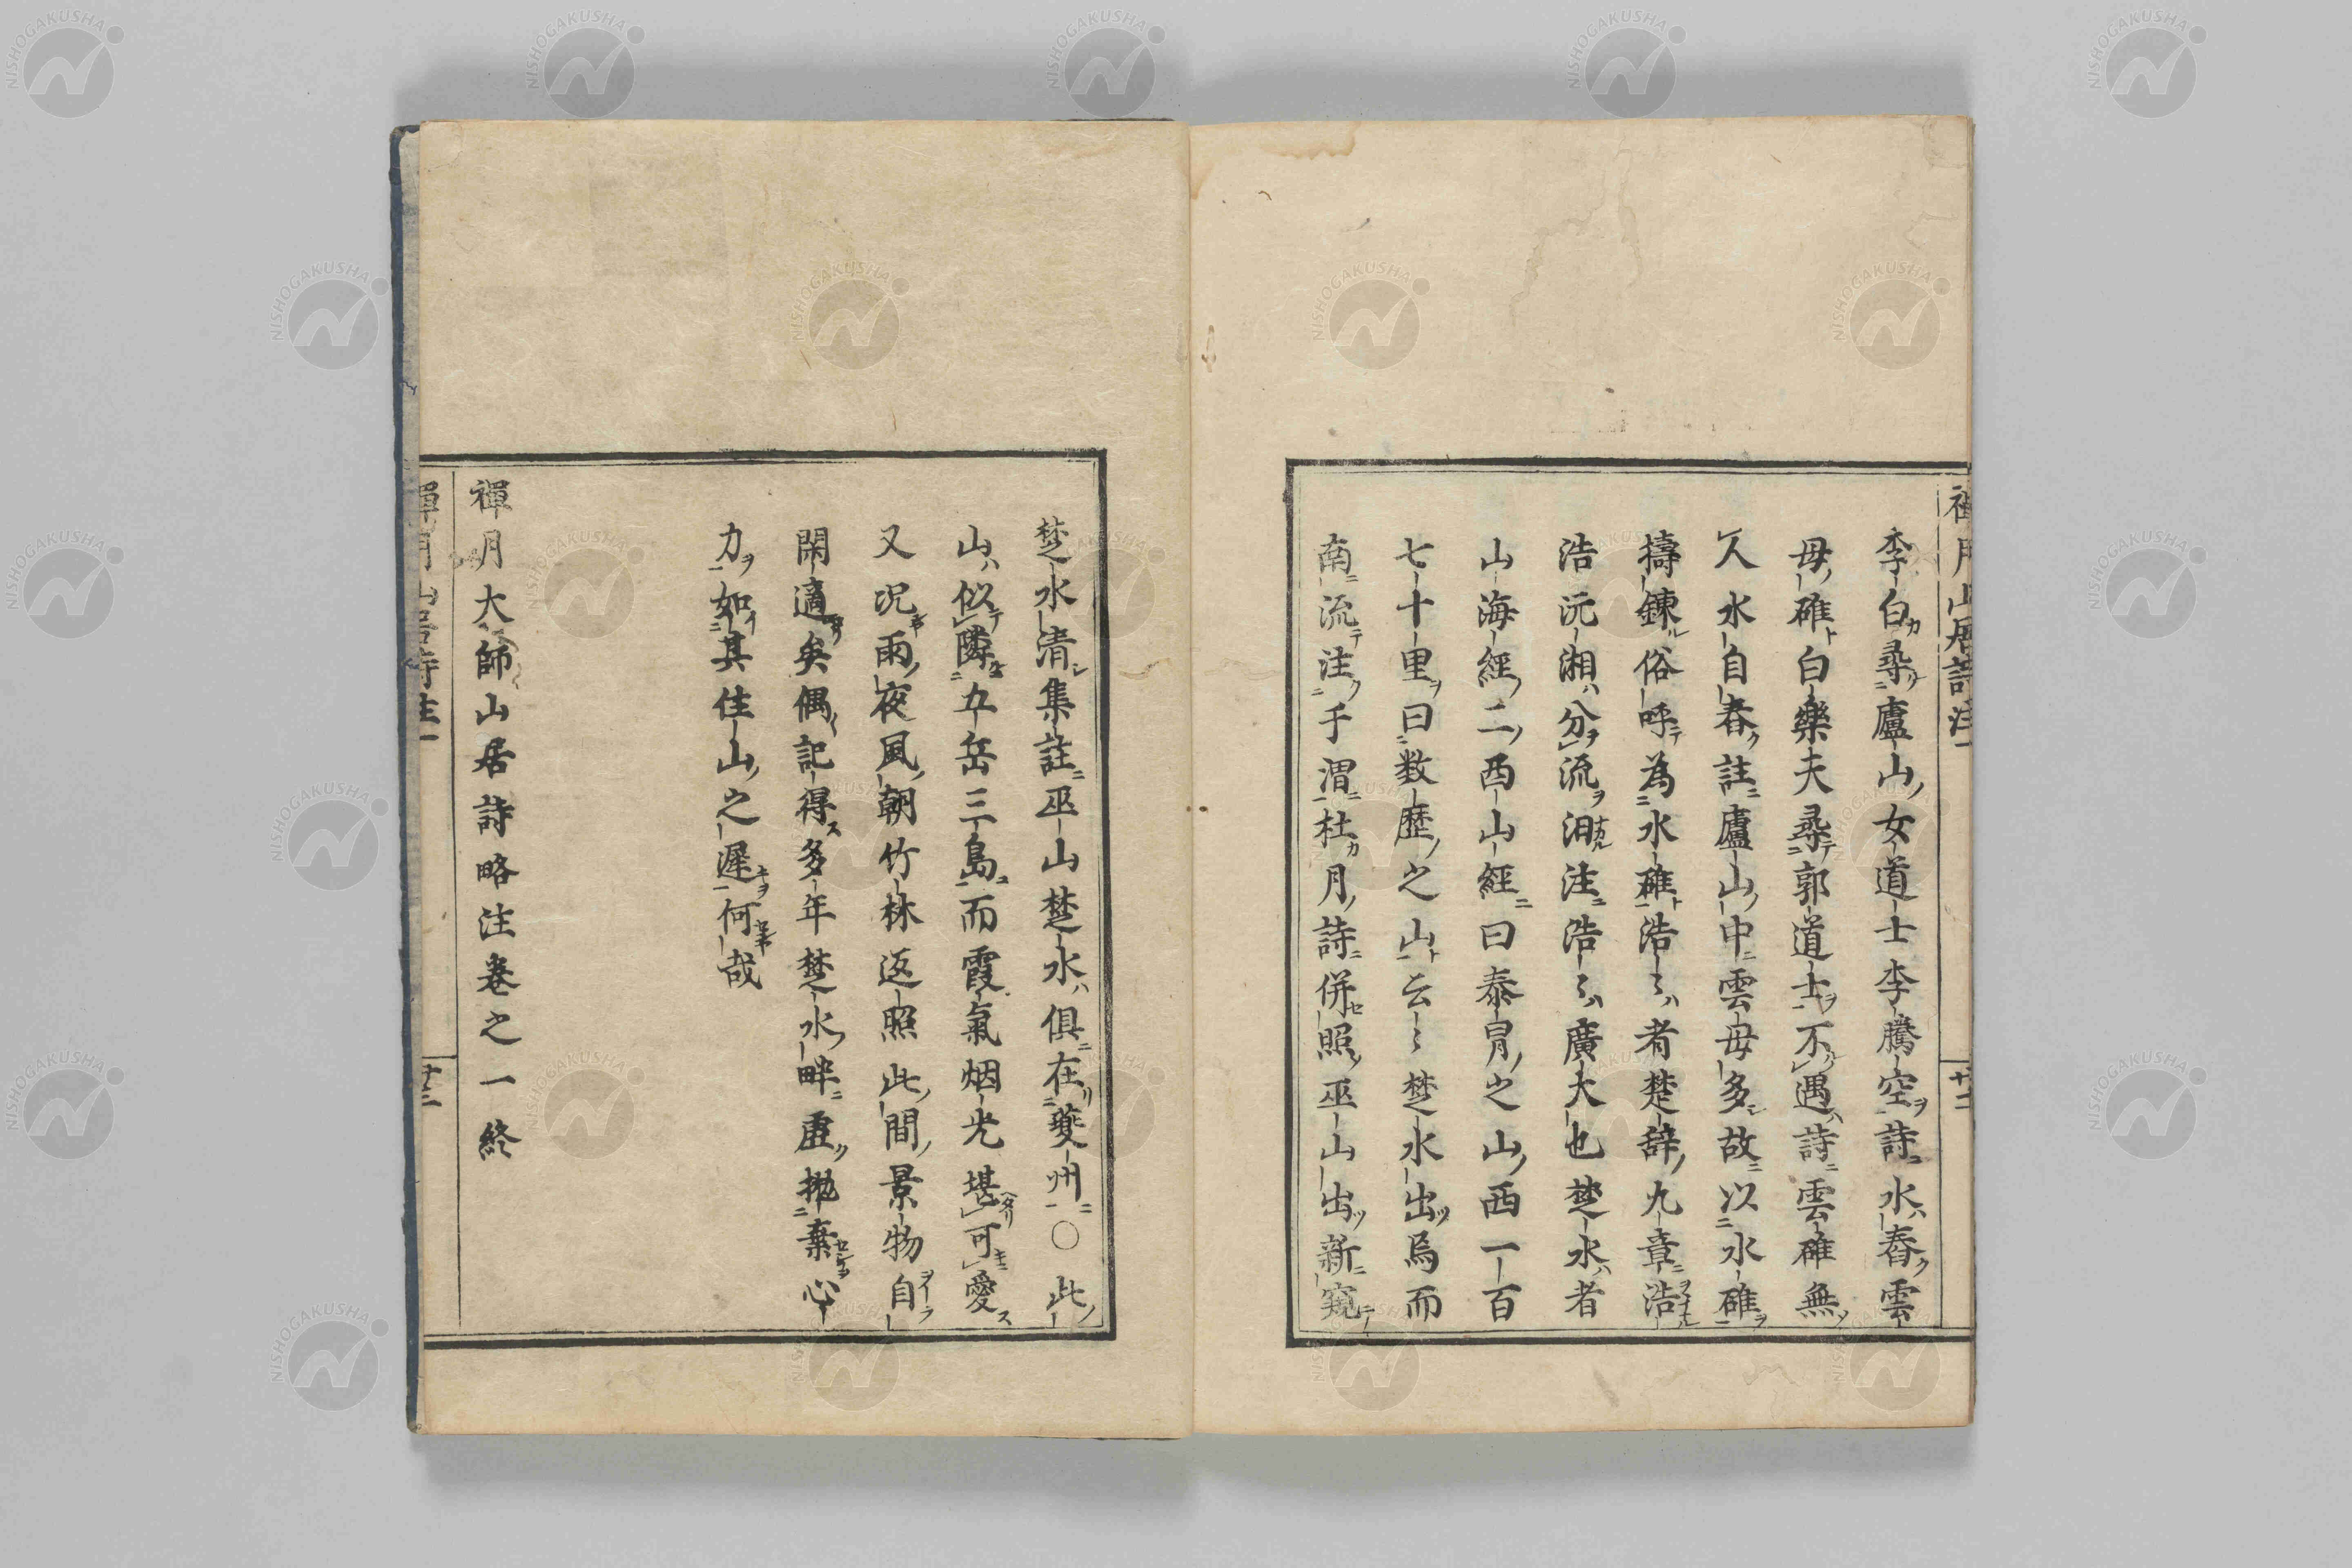 李白尋廬山女道士李騰空詩水舂雲
母碓白樂天尋郭道士不遇詩雲碓無
人水自舂註廬山中雲母多故以水碓
擣錬俗呼為水碓浩〻者楚辞九章浩
浩沅湘分流汨注浩〻廣大也楚水者
山海經二西山經曰泰冐之山西一百
七十里曰数歴之山云〻楚水出焉而
南流注于渭杜月詩併照巫山出新窺
楚水清集註巫山楚水俱在夔州〇此
山似隣五岳三島而霞氣烟光堪可愛
又况雨夜風朝竹林返照此間景物自
閑適矣偶記得多年楚水畔虚抛棄心
力如其住山之遲何哉
禪月大師山居詩略注卷之一終
禪月山居詩注一
廿二
廿三
NISHOGAKUSHA